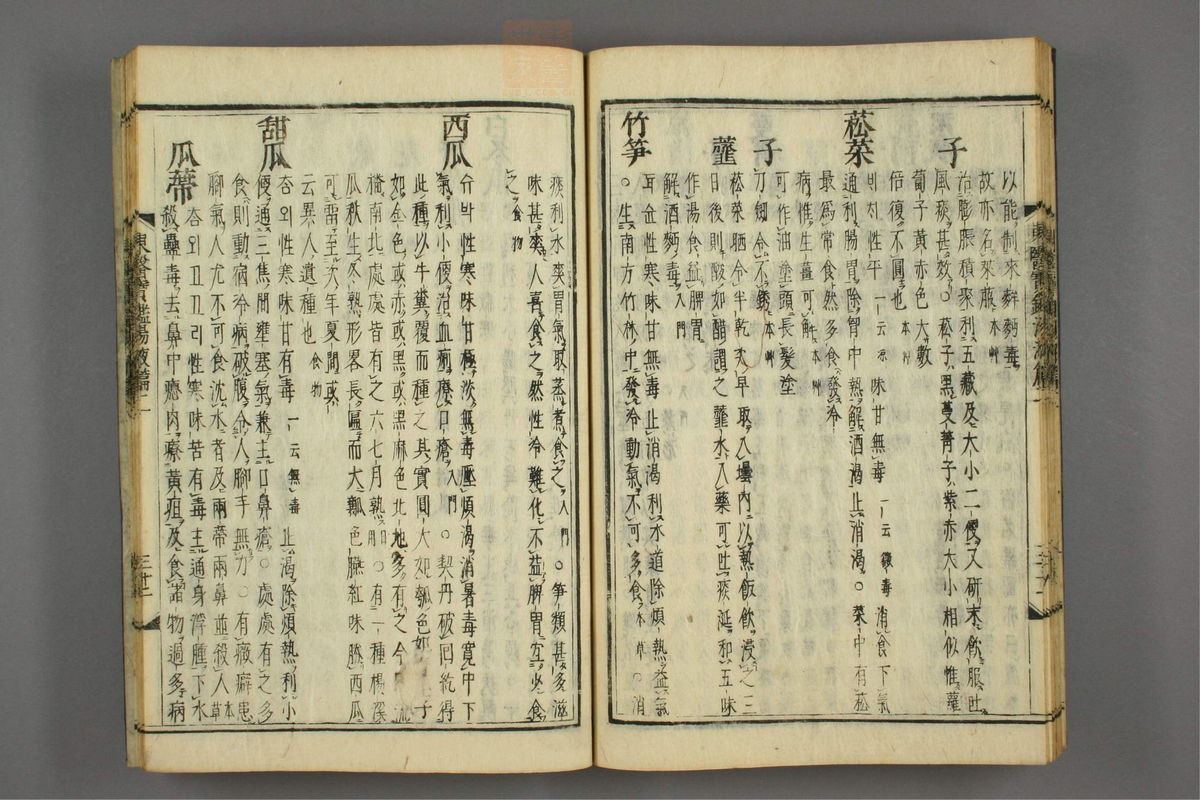 以能制來麰麪毒
故亦名萊菔本艸
子
治膨脹積聚利五藏及大小二便又研末飮服吐
風痰甚效○菘子黑蔓菁子紫赤大小相似惟蘿
蔔子黃赤色大數
倍復不圓也本艸
菘菜
비치性平一云凉味甘無毒一云微毒消食下氣
通利腸胃除胷中熱解酒渴止消渴○菜中有菘
最爲常食然多食發冷
病惟生薑可解本艸
子
可作油塗頭長髮塗
刀劒令不銹本艸
虀
菘菜晒令半乾次早取入壜內以熱飯飮浸之三
日後則酸如醋謂之虀水入藥可吐痰涎和五味
作湯食益脾胃
解酒麪毒入門
竹笋
性寒味甘無毒止消渴利水道除煩熱益氣
○生南方竹林中發冷動氣不可多食本草○消
痰利水爽胃氣取蒸煮食之入門○笋類甚多滋
味甚爽人喜食之然性冷難化不益脾胃宜少食
之食物
西瓜
슈박性寒味甘極淡無毒壓煩渴消暑毒寬中下
氣利小便治血痢療口瘡入門○契丹破回紇得
此種以牛糞覆而種之其實圓大如瓠色如靑玉子
如金色或赤或黑或黑麻色北地多有之今
南北處處皆有之六七月熟○有一種楊溪
瓜秋生冬熟形畧長匾而大瓤色臙紅味勝西瓜
可留至次年夏間或
云異人遺種也食物
甜瓜
外性寒味甘有毒一云無毒止渴除煩熱利小
便通三焦間壅塞氣兼主口鼻瘡○處處有之多
食則動宿冷病破腹令人脚手無力○有癥癖患
脚氣人尤不可食沈水者及兩蒂兩鼻並殺人本草
瓜蔕
性寒味苦有毒主通身浮腫下水
殺蠱毒去鼻中瘜肉療黃疸及食諸物過多病
東醫寶鑑湯液篇二